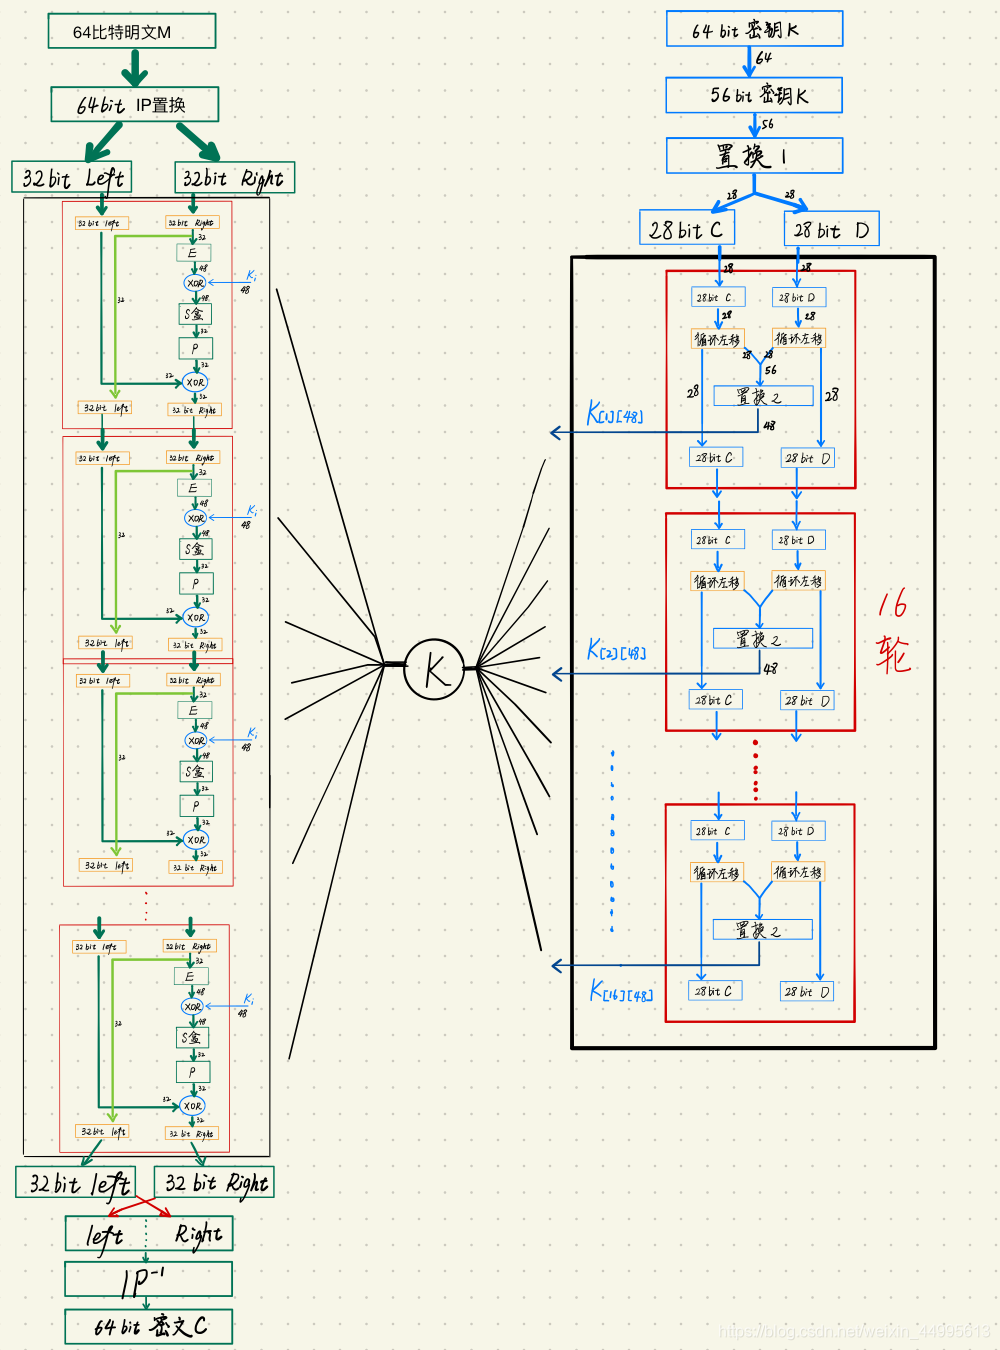 64比特明文M
64bit IP置换
32bit Left
32bit Right
32 bit left
32 bit Right
32
E
48
XOR
Ki
48
48
S盒
32
32
P
32
32
XOR
32
32 bit left
32 bit Right
32 bit left
32 bit Right
32
E
48
XOR
Ki
48
48
S盒
32
32
P
32
32
XOR
32
32 bit left
32 bit Right
32 bit left
32 bit Right
32
E
48
XOR
Ki
48
48
S盒
32
32
P
32
32
XOR
32
32 bit left
32 bit Right
32 bit left
32 bit Right
32
E
48
XOR
Ki
48
48
S盒
32
32
P
32
XOR
32
32 bit left
32 bit Right
32bit left
32 bit Right
left
Right
IP⁻¹
64bit 密文C
K
64 bit 密钥K
64
56bit 密钥K
56
置换1
28
28
28bit C
28bit D
28
28
28bit C
28bit D
28
28
循环左移
循环左移
28
28
56
28
置换2
28
48
K[1][48]
28bit C
28bit D
28bit C
28bit D
循环左移
循环左移
置换2
K[2][48]
48
28bit C
28bit D
16
轮
28bit C
28bit D
循环左移
循环左移
置换2
K[16][48]
28bit C
28bit D
https://blog.csdn.net/weixin_44995613